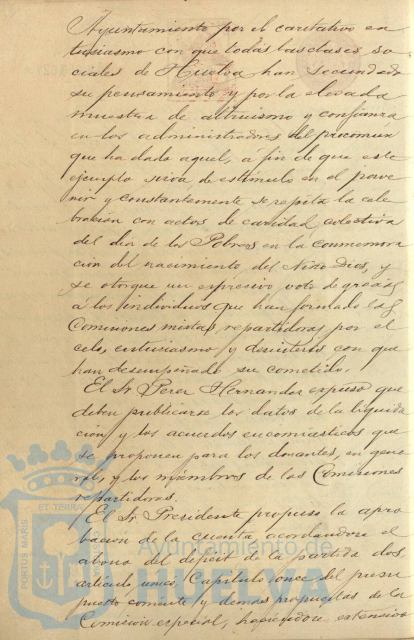 Ayuntamiento por el caritativo en
tusiasmo con que todas las clases so
ciales de Huelva han secundado
su pensamiento y por la elevada
muestra de altruismo y confianza
en los administradores del procomun
que ha dado aquel, a fin de que este
ejemplo sirva de estimulo en el porve
nir y constantemente se repita la cele
bracion con actos de caridad colectiva
del dia de los Pobres en la conmemora
cion del nacimiento del Niño Dios, y
se otorque un expresivo voto de gracias
á los individuos que han formado las
Comisiones mistas, repartidoras por el
celo, entusiasmo y desinterés con que
han desempeñado su cometido.
El Sr. Perez Hernandez expuso que
deben publicarse los datos de la liquida
cion y los acuerdos encomiasticos que
se proponen para los donantes, en gene
ral, y los miembros de las Comisiones
repartidoras.
El Sr. Presidente propuso la apro
bacion de la cuenta acordandose el
abono del deficit de la partida dos
artículo unico, Capitulo once del presu
puesto corriente y demas propuestas de la
Comision especial, haciendose extensivo
PORTUS MARIS ET TERRA
Ayuntamiento de
HUELVA